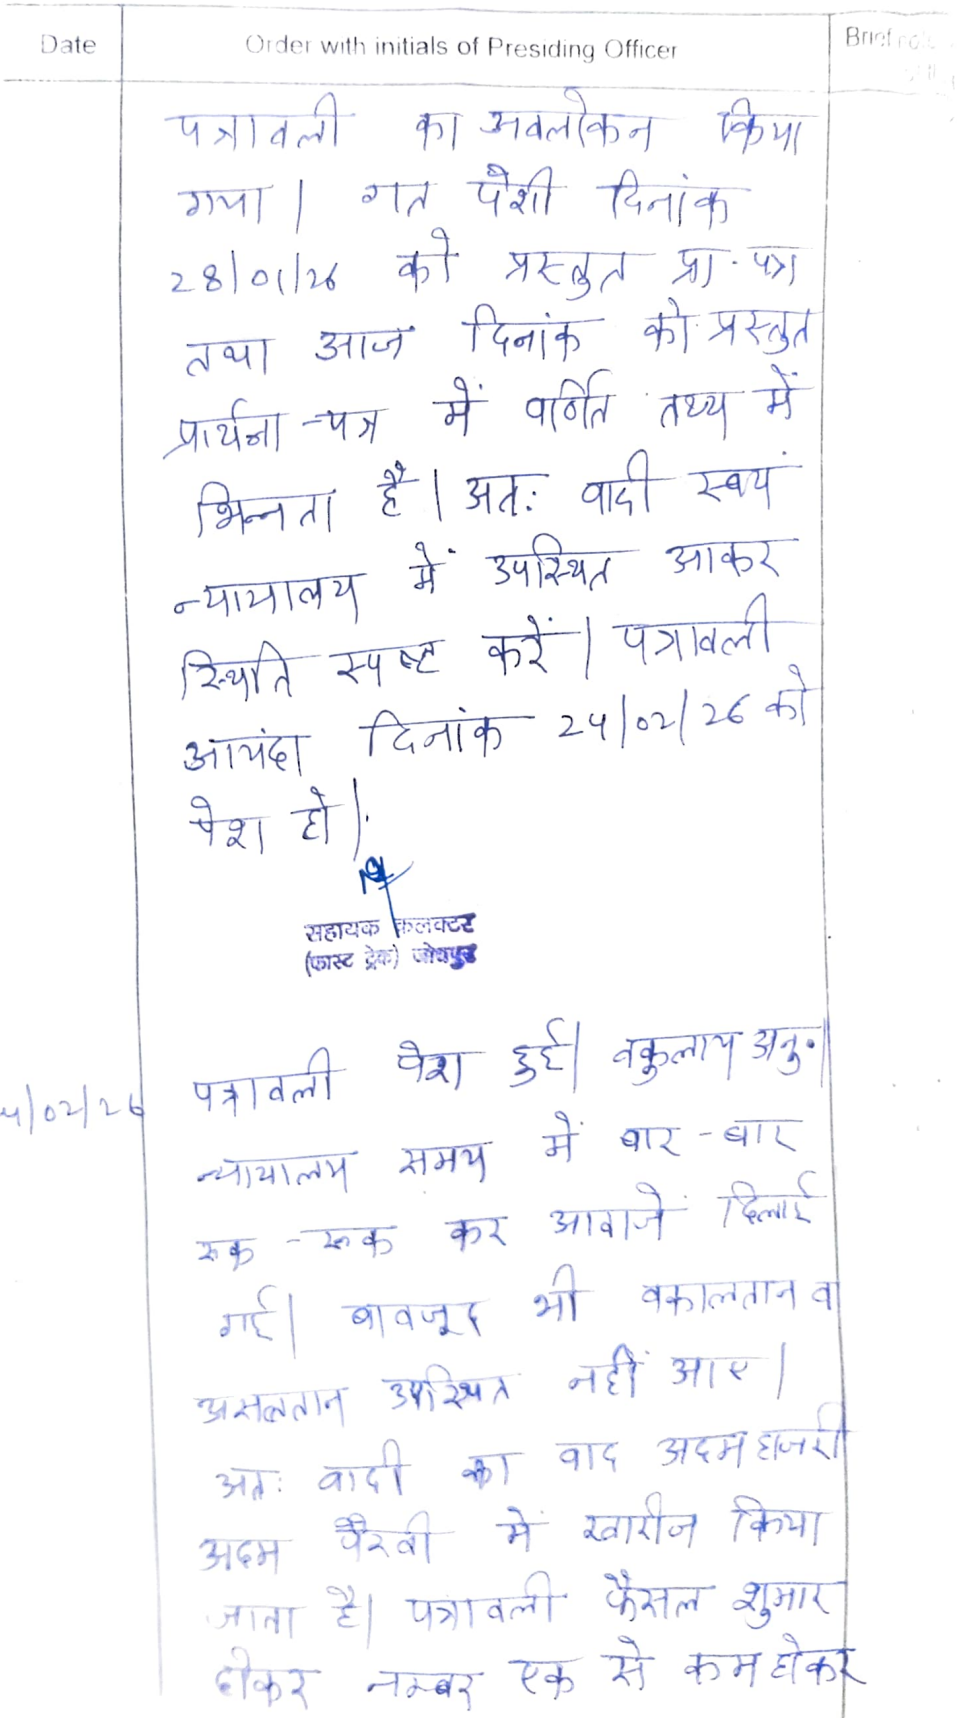 Date
Order with initials of Presiding Officer
Brief
पत्रावली का अवलोकन किया
गया। गत पेशी दिनांक
28/01/26 को प्रस्तुत प्रा. पत्र
तथा आज दिनांक को प्रस्तुत
प्रार्थना-पत्र में वर्णित तथ्य में
भिन्नता है। अतः वादी स्वयं
न्यायालय में उपस्थित आकर
स्थिति स्पष्ट करें। पत्रावली
आयंदा दिनांक 24/02/26 को
पेश हो।
सहायक कलक्टर
(फास्ट ट्रेक) जोधपुर
4/02/26
पत्रावली पेश हुई। वकुलाय अनु.।
न्यायालय समय में बार-बार
रुक-रुक कर आवाजें दिलाई
गई। बावजूद भी वकालतान वा
असलतान उपस्थित नहीं आए।
अतः वादी का वाद अदम हाजरी
अदम पैरवी में खारीज किया
जाता है। पत्रावली फैसल शुमार
होकर नम्बर एक से कम होकर